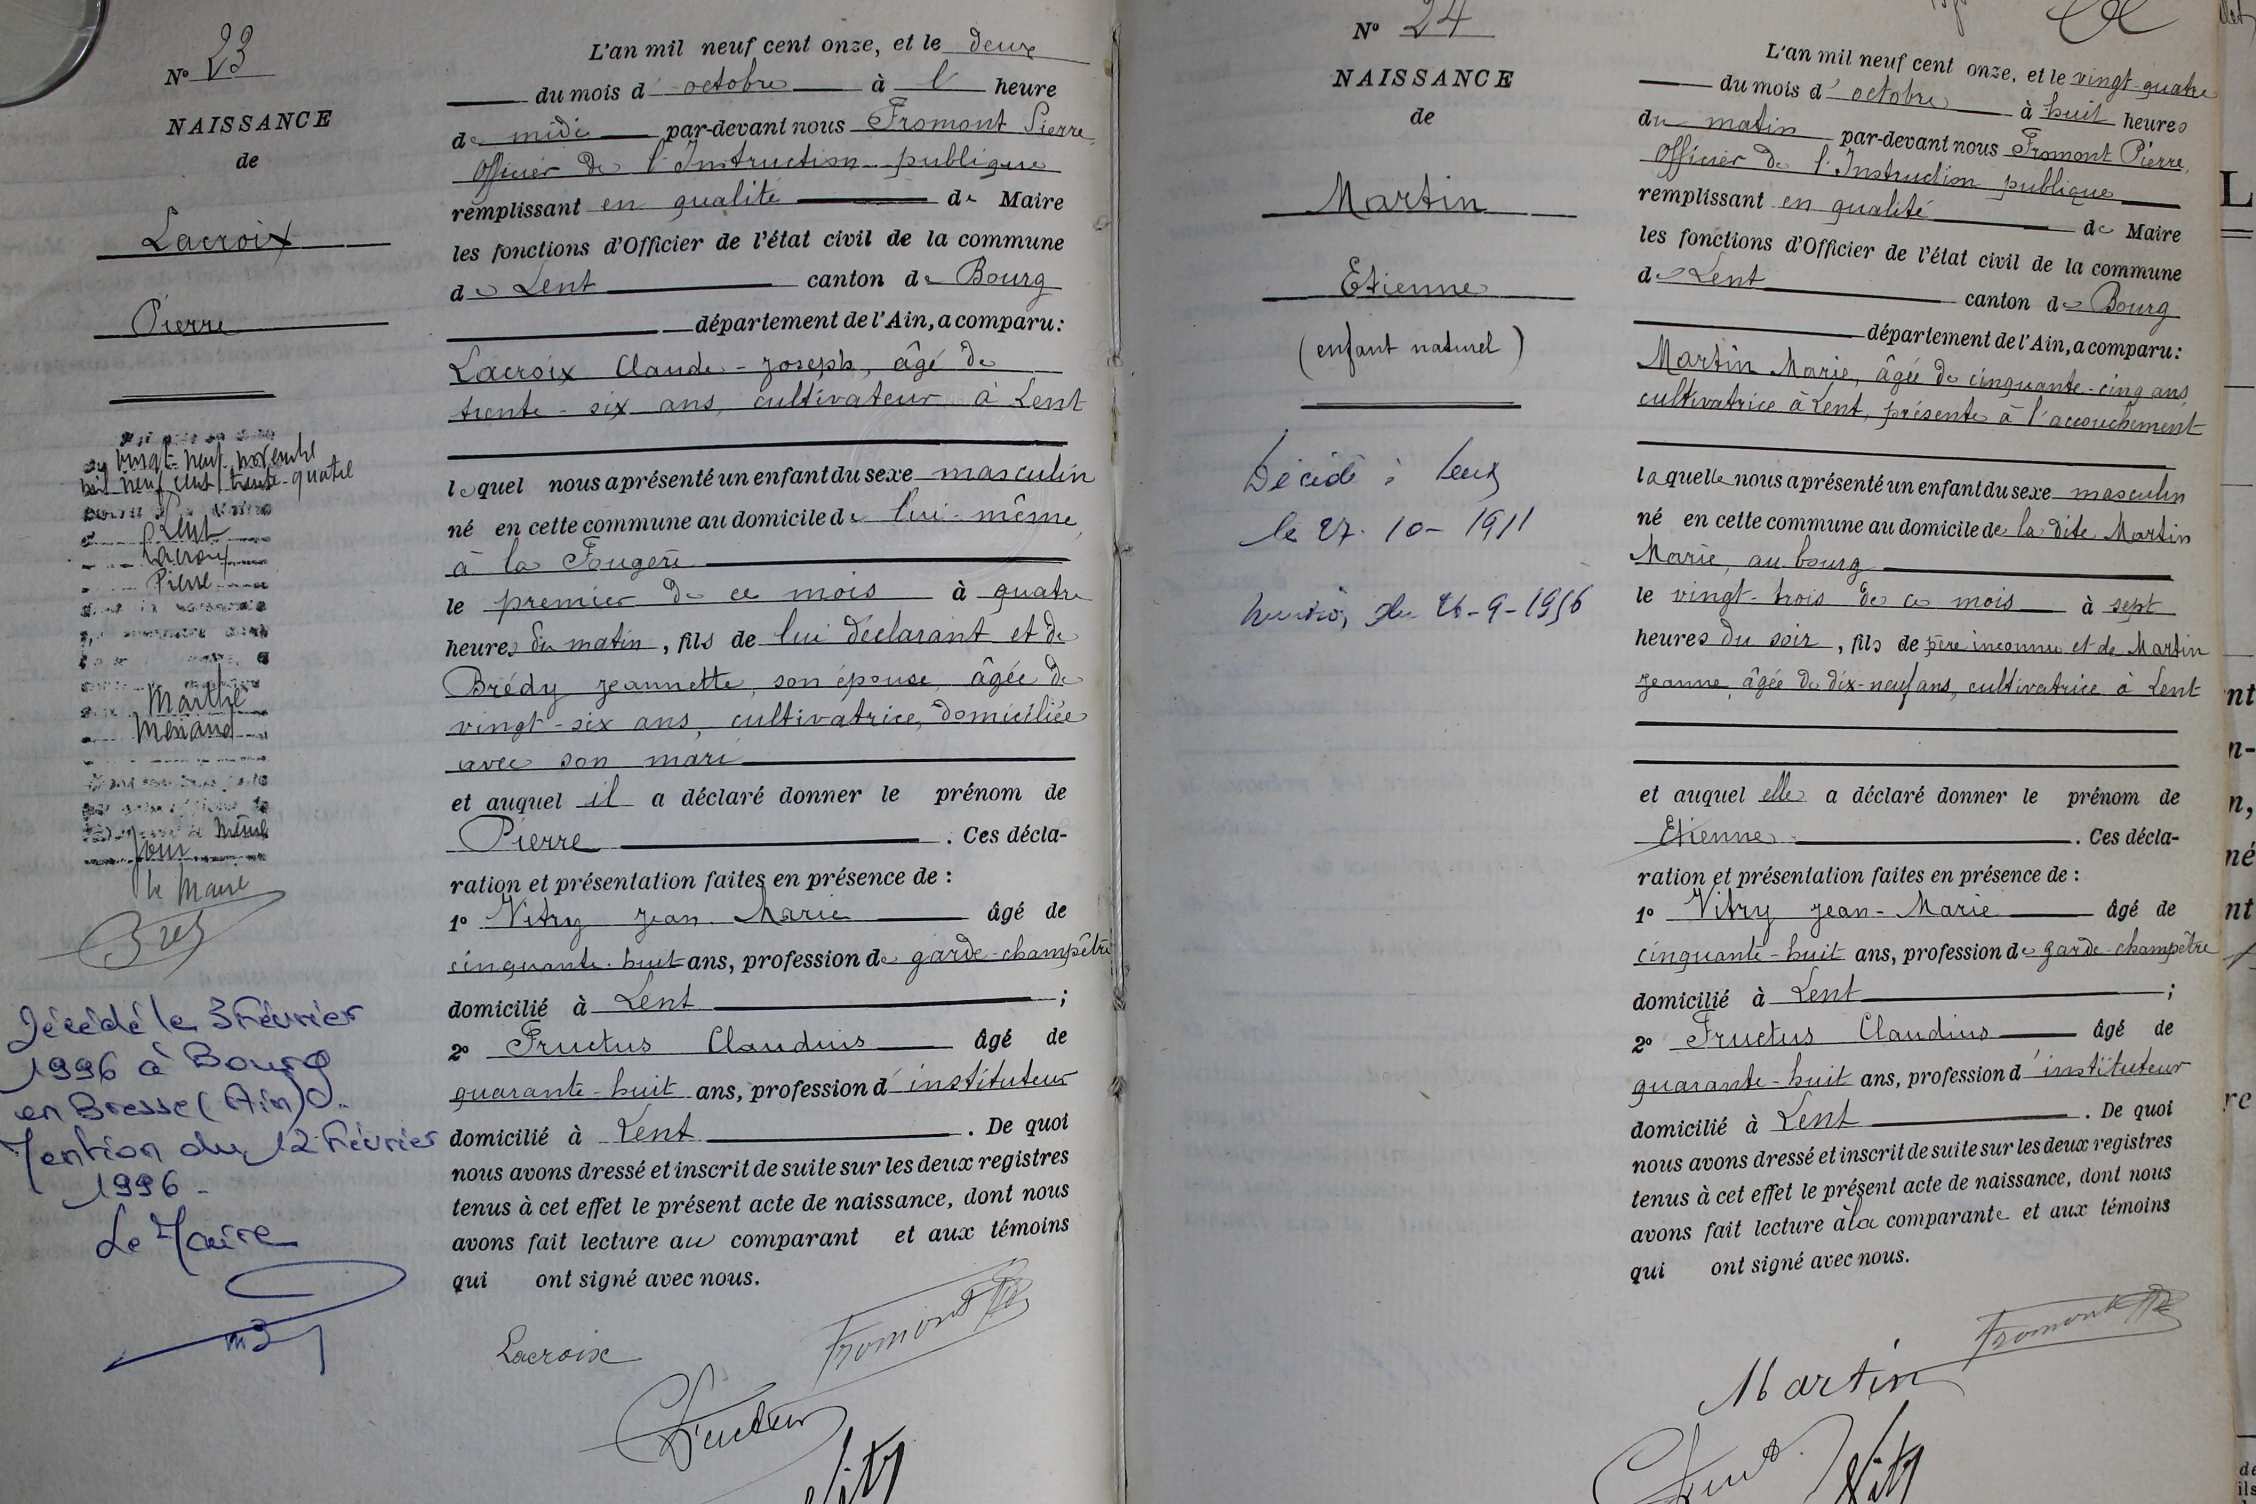 N° 23
NAISSANCE
de
Lacroix
Pierre
vingt-neuf novembre
mil neuf cent trente-quatre
Lent
Lacroix
Pierre
Marthe
Menand
même
jour
le Maire
Décédé le 3 Février
1996 à Bourg
en Bresse (Ain)
Mention du 12 Février
1996 -
Le Maire
L'an mil neuf cent onze, et le deux
du mois d' octobre à l' heure
de midi par-devant nous Fromont Pierre,
Officier de l'Instruction publique
remplissant en qualité de Maire
les fonctions d'Officier de l'état civil de la commune
de Lent canton de Bourg
département de l'Ain, a comparu :
Lacroix Claude-Joseph, âgé de
trente-six ans, cultivateur à Lent
lequel nous a présenté un enfant du sexe masculin
né en cette commune au domicile de lui-même,
à la Fougère
le premier de ce mois à quatre
heures du matin, fils de lui déclarant et de
Brédy Jeannette, son épouse, âgée de
vingt-six ans, cultivatrice, domiciliée
avec son mari
et auquel il a déclaré donner le prénom de
Pierre . Ces décla-
ration et présentation faites en présence de :
1° Vitry Jean-Marie âgé de
cinquante-huit ans, profession de garde-champêtre
domicilié à Lent ;
2° Fructus Claudius âgé de
quarante-huit ans, profession d'instituteur
domicilié à Lent . De quoi
nous avons dressé et inscrit de suite sur les deux registres
tenus à cet effet le présent acte de naissance, dont nous
avons fait lecture au comparant et aux témoins
qui ont signé avec nous.
Lacroix
Fromont
Fructus
Vitry
N° 24
NAISSANCE
de
Martin
Etienne
(enfant naturel)
Décédé à Lent
le 27-10-1911
le 26-9-1956
L'an mil neuf cent onze, et le vingt-quatre
du mois d' octobre à huit heures
du matin par-devant nous Fromont Pierre,
Officier de l'Instruction publique
remplissant en qualité de Maire
les fonctions d'Officier de l'état civil de la commune
de Lent canton de Bourg
département de l'Ain, a comparu :
Martin Marie, âgée de cinquante-cinq ans,
cultivatrice à Lent, présente à l'accouchement
laquelle nous a présenté un enfant du sexe masculin
né en cette commune au domicile de la dite Martin
Marie, au bourg
le vingt-trois de ce mois à sept
heures du soir, fils de père inconnu et de Martin
Jeanne, âgée de dix-neuf ans, cultivatrice à Lent
et auquel elle a déclaré donner le prénom de
Etienne . Ces décla-
ration et présentation faites en présence de :
1° Vitry Jean-Marie âgé de
cinquante-huit ans, profession de garde-champêtre
domicilié à Lent ;
2° Fructus Claudius âgé de
quarante-huit ans, profession d'instituteur
domicilié à Lent . De quoi
nous avons dressé et inscrit de suite sur les deux registres
tenus à cet effet le présent acte de naissance, dont nous
avons fait lecture à la comparante et aux témoins
qui ont signé avec nous.
Fromont
Martin
Vitry